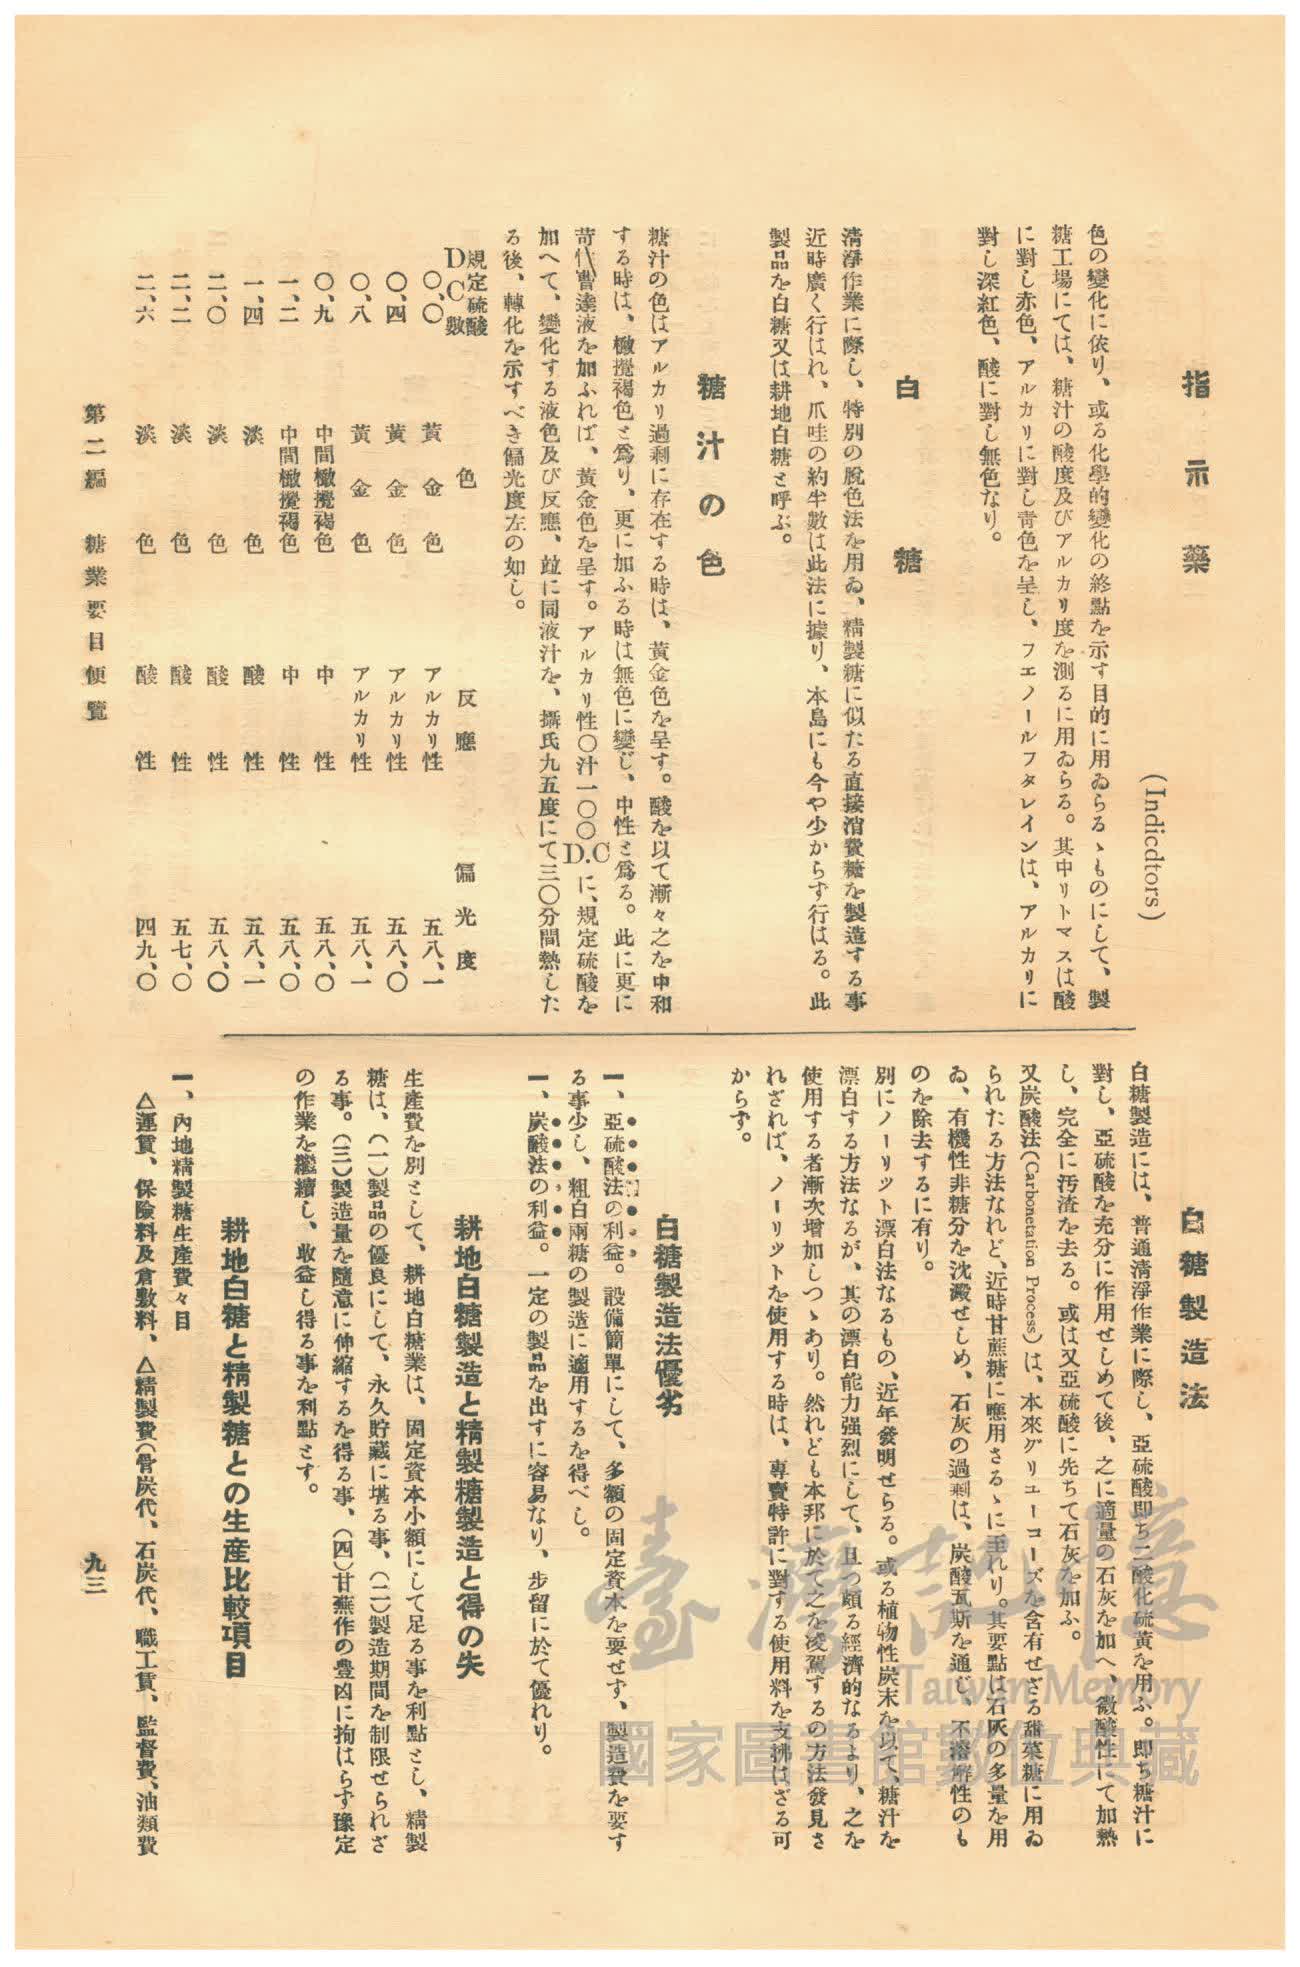 指示藥
(Indicdtors)
色の變化に依り、或る化學的變化の終點を示す目的に用ゐらるゝものにして、製
糖工場にては、糖汁の酸度及びアルカリ度を測るに用ゐらる。其中リトマスは酸
に對し赤色、アルカリに對し靑色を呈し、フエノールフタレインは、アルカリに
對し深紅色、酸に對し無色なり。
白糖
淸淨作業に際し、特別の脫色法を用ゐ、精製糖に似たる直接消費糖を製造する事
近時廣く行はれ、爪哇の約半數は此法に據り、本島にも今や少からず行はる。此
製品を白糖又は耕地白糖と呼ぶ。
糖汁の色
糖汁の色はアルカリ過剩に存在する時は、黃金色を呈す。酸を以て漸々之を中和
する時は、橄攬褐色と爲り、更に加ふる時は無色に變じ、中性と爲る。此に更に
苛性曹達液を加ふれば、黃金色を呈す。アルカリ性〇汁一〇〇D.Cに、規定硫酸を
加へて、變化する液色及び反應、竝に同液汁を、攝氏九五度にて三〇分間熱した
る後、轉化を示すべき偏光度左の如し。
規定硫酸DC數 色 反應 偏光度
〇、〇 黃金色 アルカリ性 五八、一
〇、四 黃金色 アルカリ性 五八、〇
〇、八 黃金色 アルカリ性 五八、一
〇、九 中間橄攬褐色 中性 五八、〇
一、二 中間橄攬褐色 中性 五八、〇
一、四 淡色 酸性 五八、一
二、〇 淡色 酸性 五八、〇
二、二 淡色 酸性 五七、〇
二、六 淡色 酸性 四九、〇
白糖製造法
白糖製造には、普通淸淨作業に際し、亞硫酸卽ち二酸化硫黃を用ふ。卽ち糖汁に
對し、亞硫酸を充分に作用せしめて後、之に適量の石灰を加へ、微酸性にて加熱
し、完全に汚渣を去る。或は又亞硫酸に先ちて石灰を加ふ。
又炭酸法(Carbonetation Process)は、本來グリューコーズを含有せざる甜菜糖に用ゐ
られたる方法なれど、近時甘蔗糖に應用さるゝに至れり。其要點は石灰の多量を用
ゐ、有機性非糖分を沈澱せしめ、石灰の過剩は、炭酸瓦斯を通じ、不溶解性のも
のを除去するに有り。
別にノーリット漂白法なるもの、近年發明せらる。或る植物性炭末を以て、糖汁を
漂白する方法なるが、其の漂白能力强烈にして、且つ頗る經濟的なるより、之を
使用する者漸次增加しつゝあり。然れども本邦に於て之を凌駕するの方法發見さ
れざれば、ノーリットを使用する時は、專賣特許に對する使用料を支拂はざる可
からず。
白糖製造法優劣
一、亞硫酸法の利益。設備簡單にして、多額の固定資本を要せず、製造費を要す
る事少し、粗白兩糖の製造に適用するを得べし。
一、炭酸法の利益。一定の製品を出すに容易なり、步留に於て優れり。
耕地白糖製造と精製糖製造と得の失
生產費を別として、耕地白糖業は、固定資本小額にして足る事を利點とし、精製
糖は、(一)製品の優良にして、永久貯藏に堪る事、(二)製造期間を制限せられざ
る事。(三)製造量を隨意に伸縮するを得る事、(四)甘蔗作の豊凶に拘はらず豫定
の作業を繼續し、收益し得る事を利點とす。
耕地白糖と精製糖との生産比較項目
一、內地精製糖生產費々目
△運賃、保險料及倉敷料、△精製費(骨炭代、石炭代、職工賃、監督費、油類費
第二編 糖業要目便覽
九三
臺灣記憶
Taiwan Memory
國家圖書館數位典藏